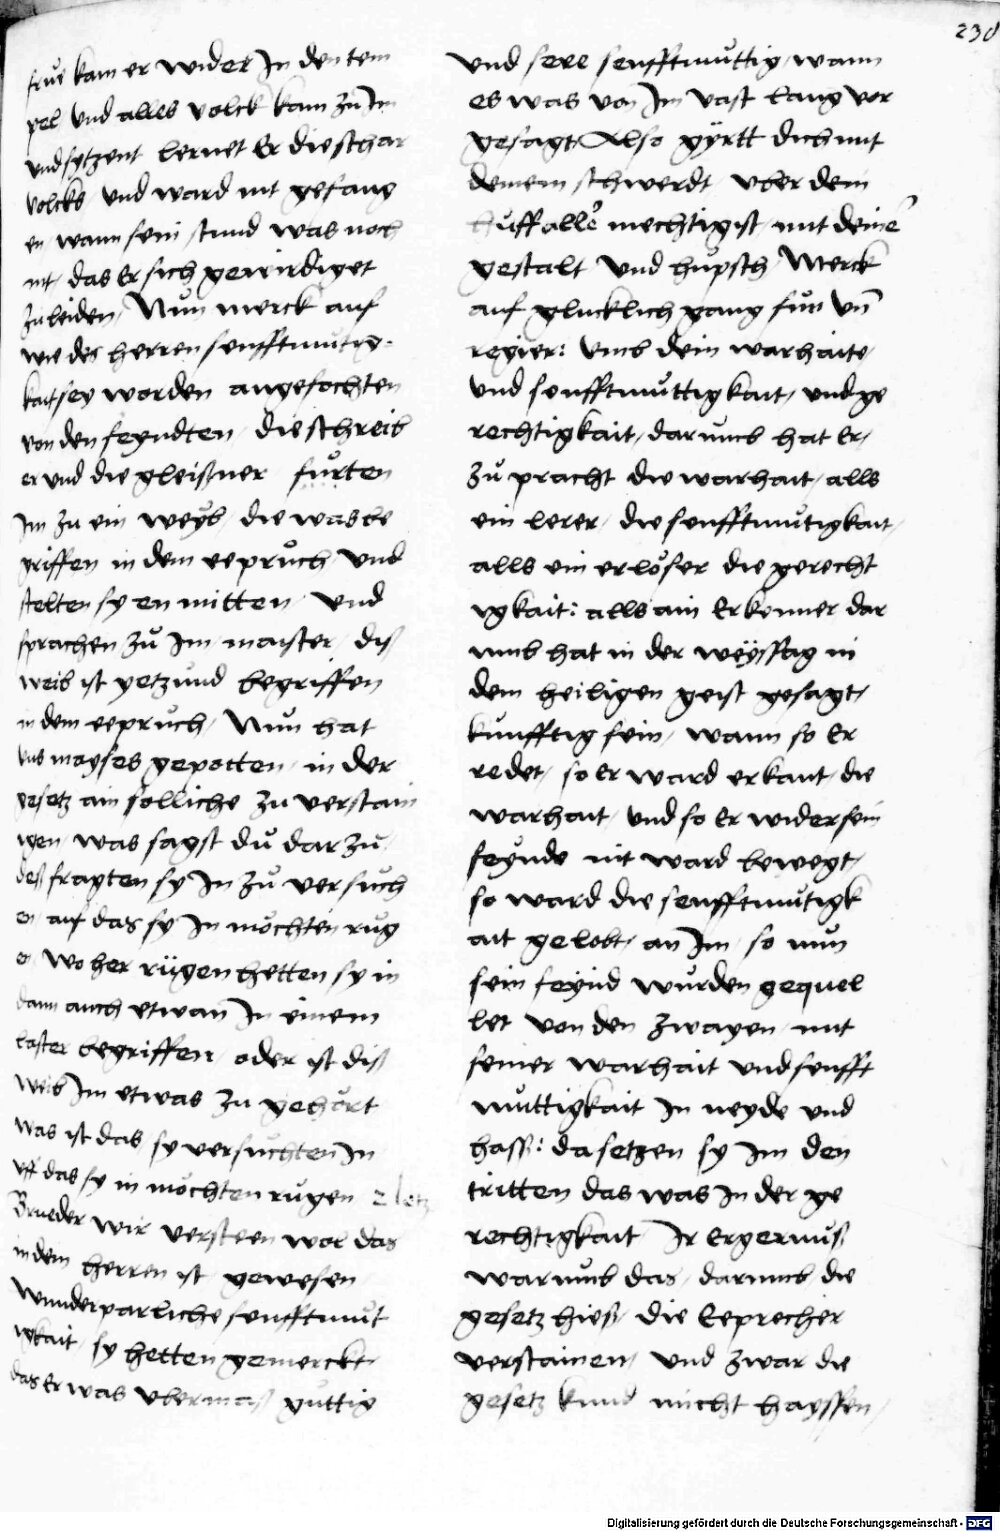 230
frue kam er wider In den tem
pel und alles volck kam zu Im
und sytzent lernet Er die schar
volcks und ward nit gefang
en wann sein stund was noch
nit das Er sich gewirdiget
zu leiden Nun merck auf
wie des herren senfftmutig-
kait sey worden angefochten
von den feyndten die schreib
er und die gleißner furten
Im zu ein weyb die was be
griffen in dem eepruch und
stelten sy en mitten und
sprachen zu Im maister diß
weib ist yetzund begriffen
in dem eepruch Nun hat
uns moyses gepotten in der
gesetz ain solliche zu verstain
igen was sagst du dar zu
deß fragten sy In zu versuch
en auf das sy In möchten rug
en wo her rügen hetten sy in
dann auch etwan In einem
laster begriffen oder ist diß
weib Im etwas zu gehört
was ist das sy versuchten In
uff das sy in möchten rugen
Brueder wir versteen wol das
in dem herren ist gewesen
wunderparliche senfftmut
igkait sy hetten gemerckt
das er was ubermaß guttig
und sere senfftmuttig wann
es was von Im vast lang vor
gesagt Also gyrtt dich mit
deinem schwerdt uber dein
huff alle mechtigist mit deine
gestalt und hupsch Merck
auf glucklich gang fur un
regier: umb dein warhaite
und senfftmuttigkait und ge
rechtigkait darumb hat Er
zu pracht die warhait alls
ein lerer die senfftmutigkait
alls ein erlöser die gerecht
igkait: alls ain Erkenner dar
umb hat in der weyssag in
dem heiligen geist gesagt
kunfftig sein wann so Er
redet so Er ward erkant die
warhait und so Er wider sein
feynde nit ward bewegt
so ward die senfftmutigk
ait gelobt an Im so nun
sein feynd wurden gequel
let von den zwayen mit
seiner warhait und senfft
muttigkait In neyde und
hass: da setzen sy Im den
tritten das was In der ge
rechtigkait Ir Ergernuß
warumb das darumb die
gesetz hieß die Eeprecher
verstainen und zwar die
gesetz kund nicht hayssen
Digitalisierung gefördert durch die Deutsche Forschungsgemeinschaft - DFG